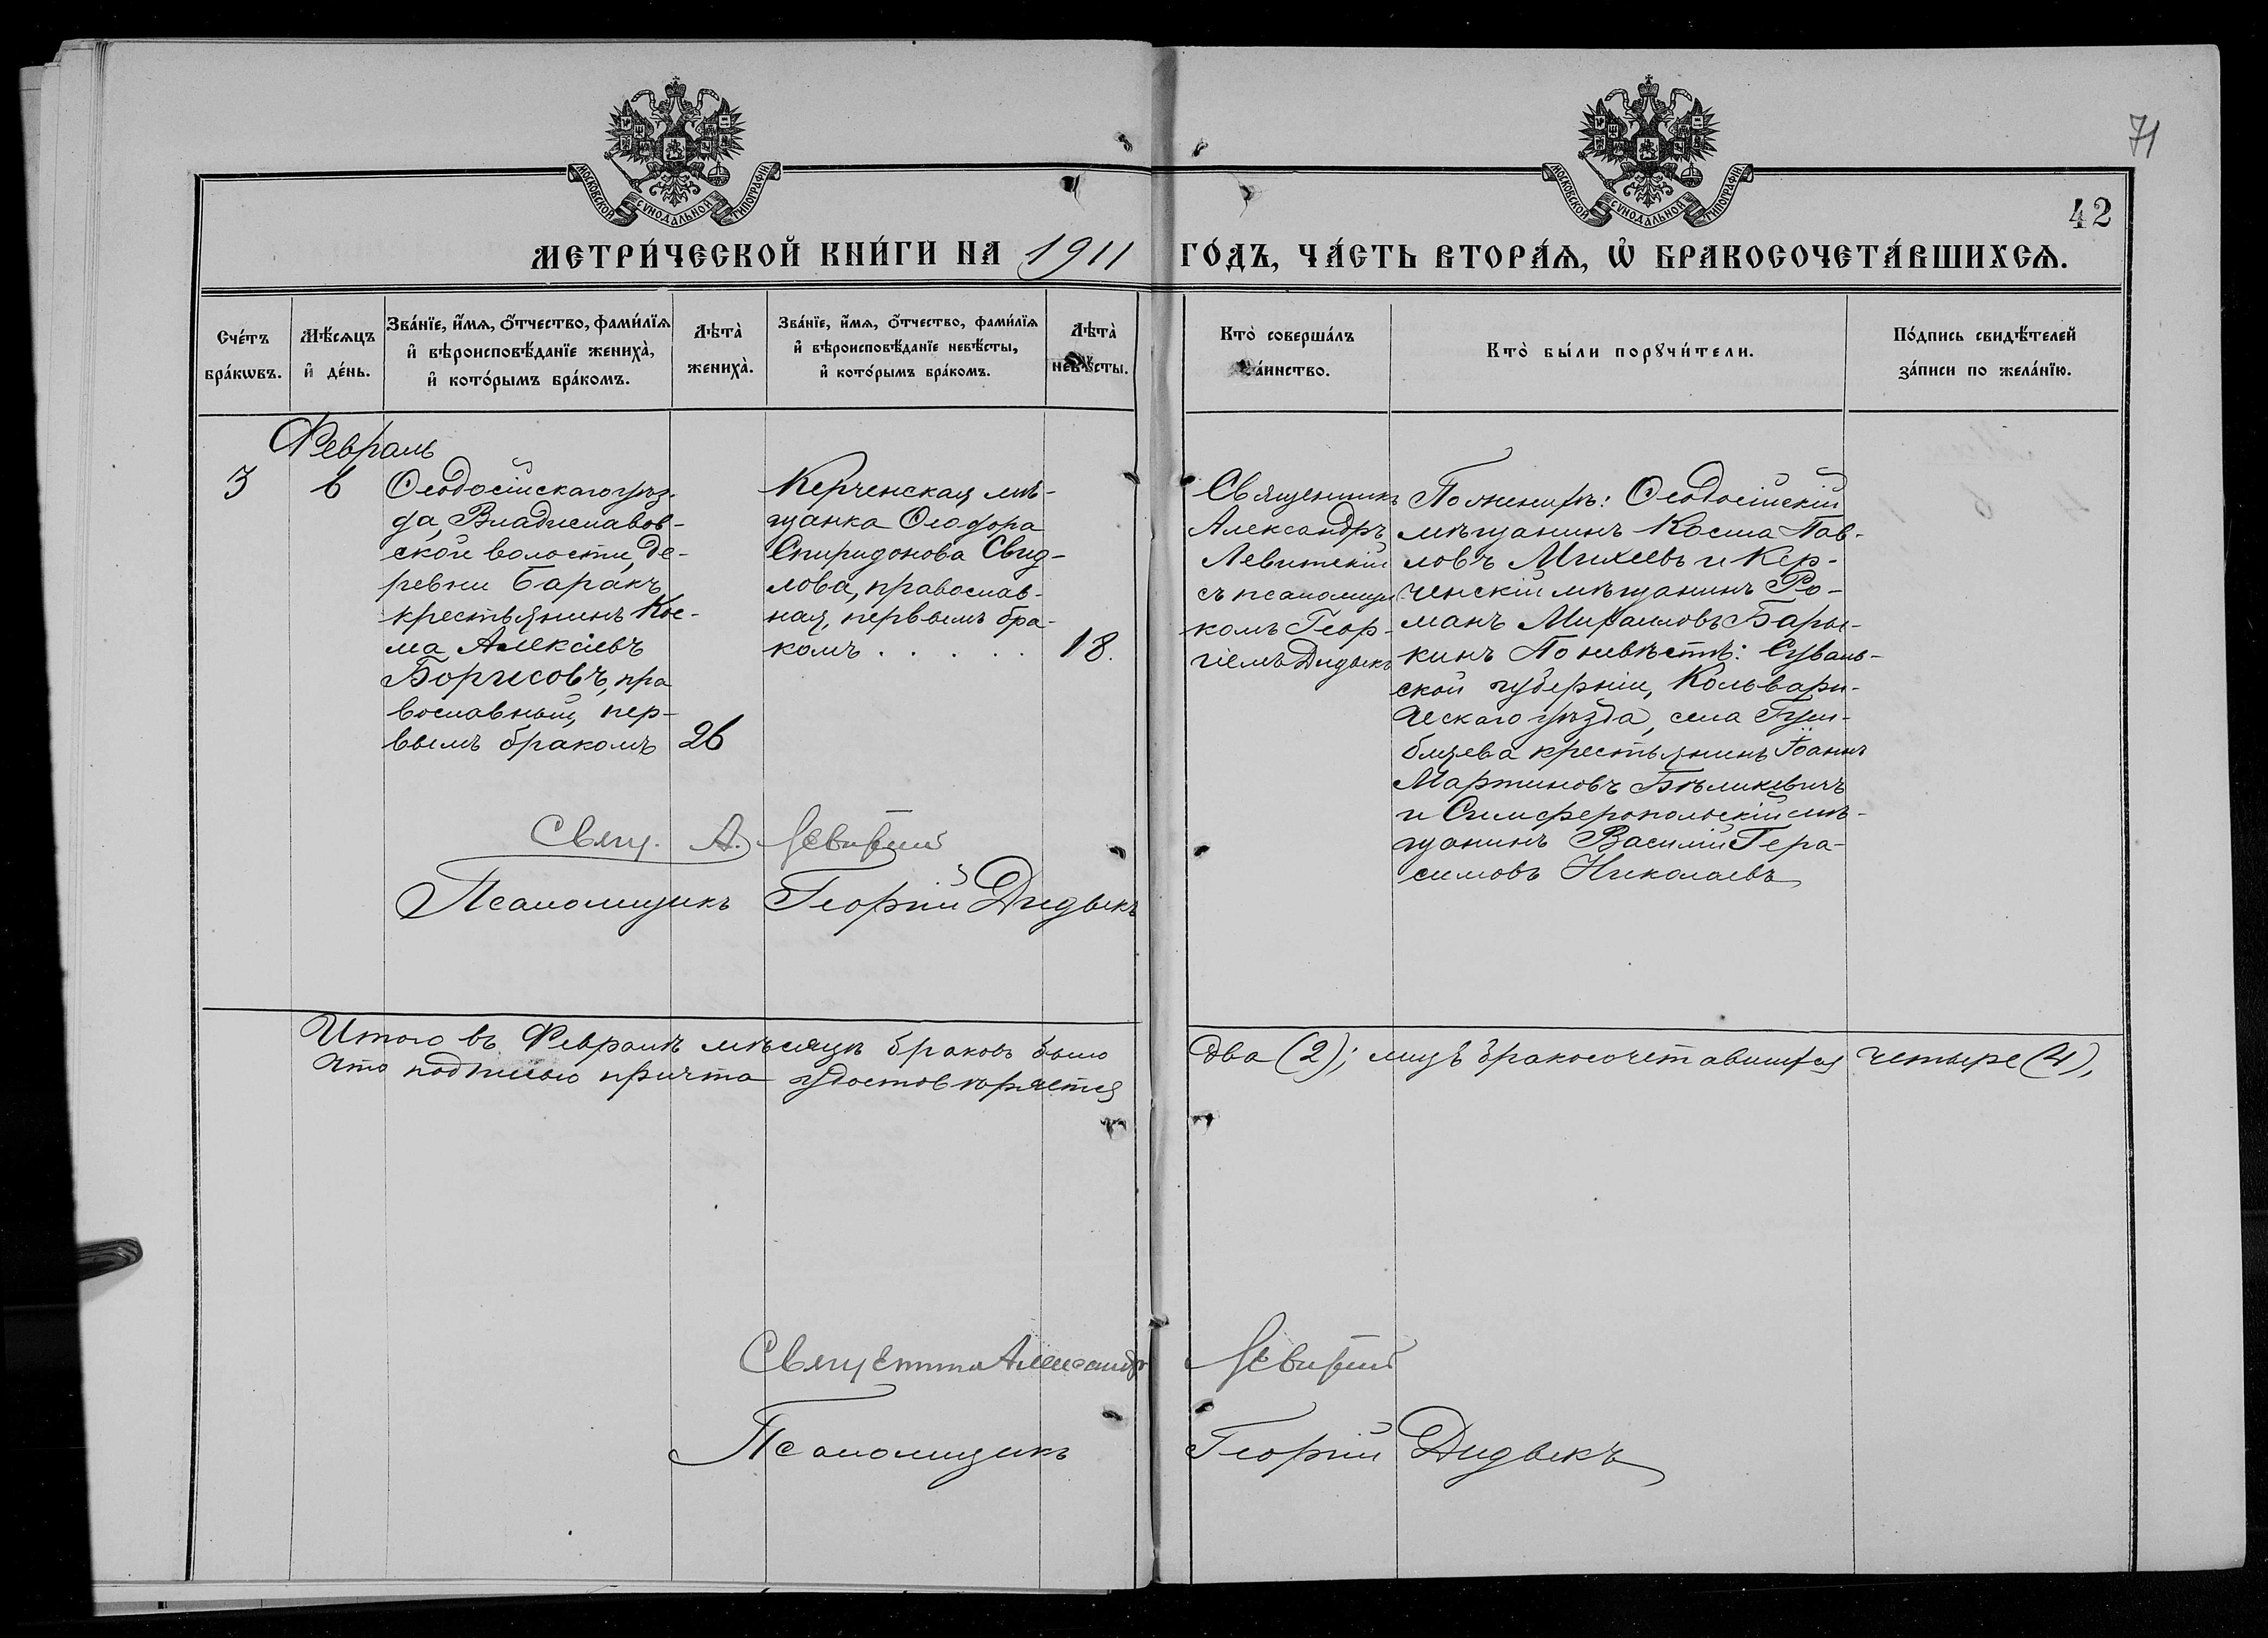 71
42
МОСКОВСКОЙ СѴНОДАЛЬНОЙ ТИПОГРАФІИ
МОСКОВСКОЙ СѴНОДАЛЬНОЙ ТИПОГРАФІИ
МЕТРИ́ЧЕСКОЙ КНИ́ГИ НА 1911 ГО́ДЪ, ЧА́СТЬ ВТОРА́Ѧ, Ѡ҆ БРАКОСОЧЕТА́ВШИХСѦ.
Сче́тъ бра́кѡвъ.
Мѣ́сѧцъ и҆ де́нь.
Зва́нїе, и҆́мѧ, ѻ҆́тчество, фами́лїѧ
и҆ вѣроисповѣ́данїе жениха̀,
и҆ кото́рымъ бра́комъ.
Лѣта̀ жениха̀.
Зва́нїе, и҆́мѧ, ѻ҆́тчество, фами́лїѧ
и҆ вѣроисповѣ́данїе невѣ́сты,
и҆ кото́рымъ бра́комъ.
Лѣта̀ невѣ́сты.
Кто̀ соверша́лъ та́инство.
Кто̀ бы́ли порꙋчи́тели.
По́дпись свидѣ́телей
за́писи по жела́нїю.
Февраль
3
6
Ѳеодосійскаго уѣз-
да, Владиславов-
ской волости, де-
ревни Баракъ
крестьянинъ Кос-
ма Алексіевъ
Борисовъ, пра
вославный, пер-
вымъ бракомъ
26
Керченская мѣ-
щанка Ѳеодора
Спиридонова Свид-
лова, православ-
ная, первымъ бра-
комъ . . . . .
18.
Священникъ
Александръ
Левитскій
съ псаломщи
комъ Геор-
гіемъ Дидыкъ
По женихѣ: Ѳеодосійскій
мѣщанинъ Косма Пав-
ловъ Михеевъ и Кер-
ченскій мѣщанинъ Ро-
манъ Михаиловъ Бары-
кинъ По невѣстѣ: Суваль-
ской губерніи, Кольвари-
ческаго уѣзда, села Гум-
блюева крестьянинъ Іоаннъ
Мартиновъ Бѣликевичъ
и Симферопольскій мѣ-
щанинъ Василій Гера-
симовъ Николаевъ
Свящ. А. Левитскій
Псаломщикъ Георгій Дидыкъ
Итого въ Февралѣ мѣсяцѣ браковъ было два (2); лицъ бракосочетавшихся четыре (4),
Что подписью причта удостовѣряется
Священникъ Александръ Левитскій
Псаломщикъ Георгій Дидыкъ